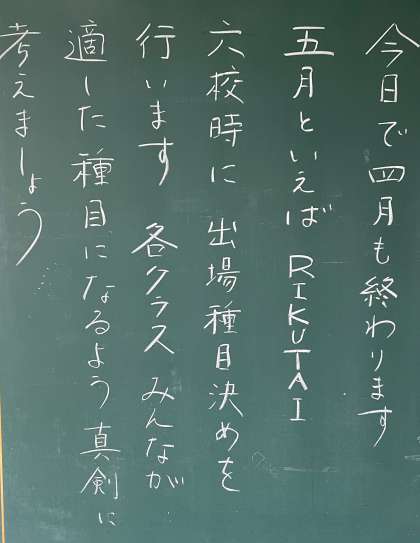 今日で四月も終わります
五月といえば RIKUTAI
六校時に 出場種目決めを
行います 各クラス みんなが
適した種目になるよう 真剣に
考えましょう